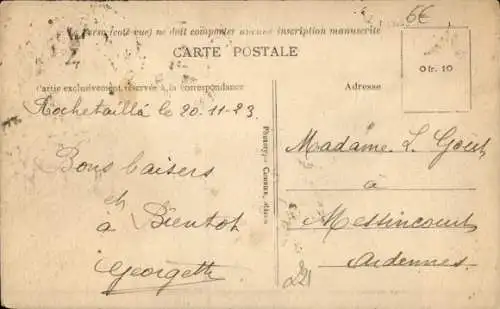 6€
(côté vue) ne doit comporter aucune inscription manuscrite
CARTE POSTALE
Partie exclusivement réservée à la correspondance
Adresse
0 fr. 10
Rochetaillé le 20-11-23
Bons baisers
et
à Bientot
Georgette
Phototypie
Madame L. Gout
à
Messincourt
Ardennes